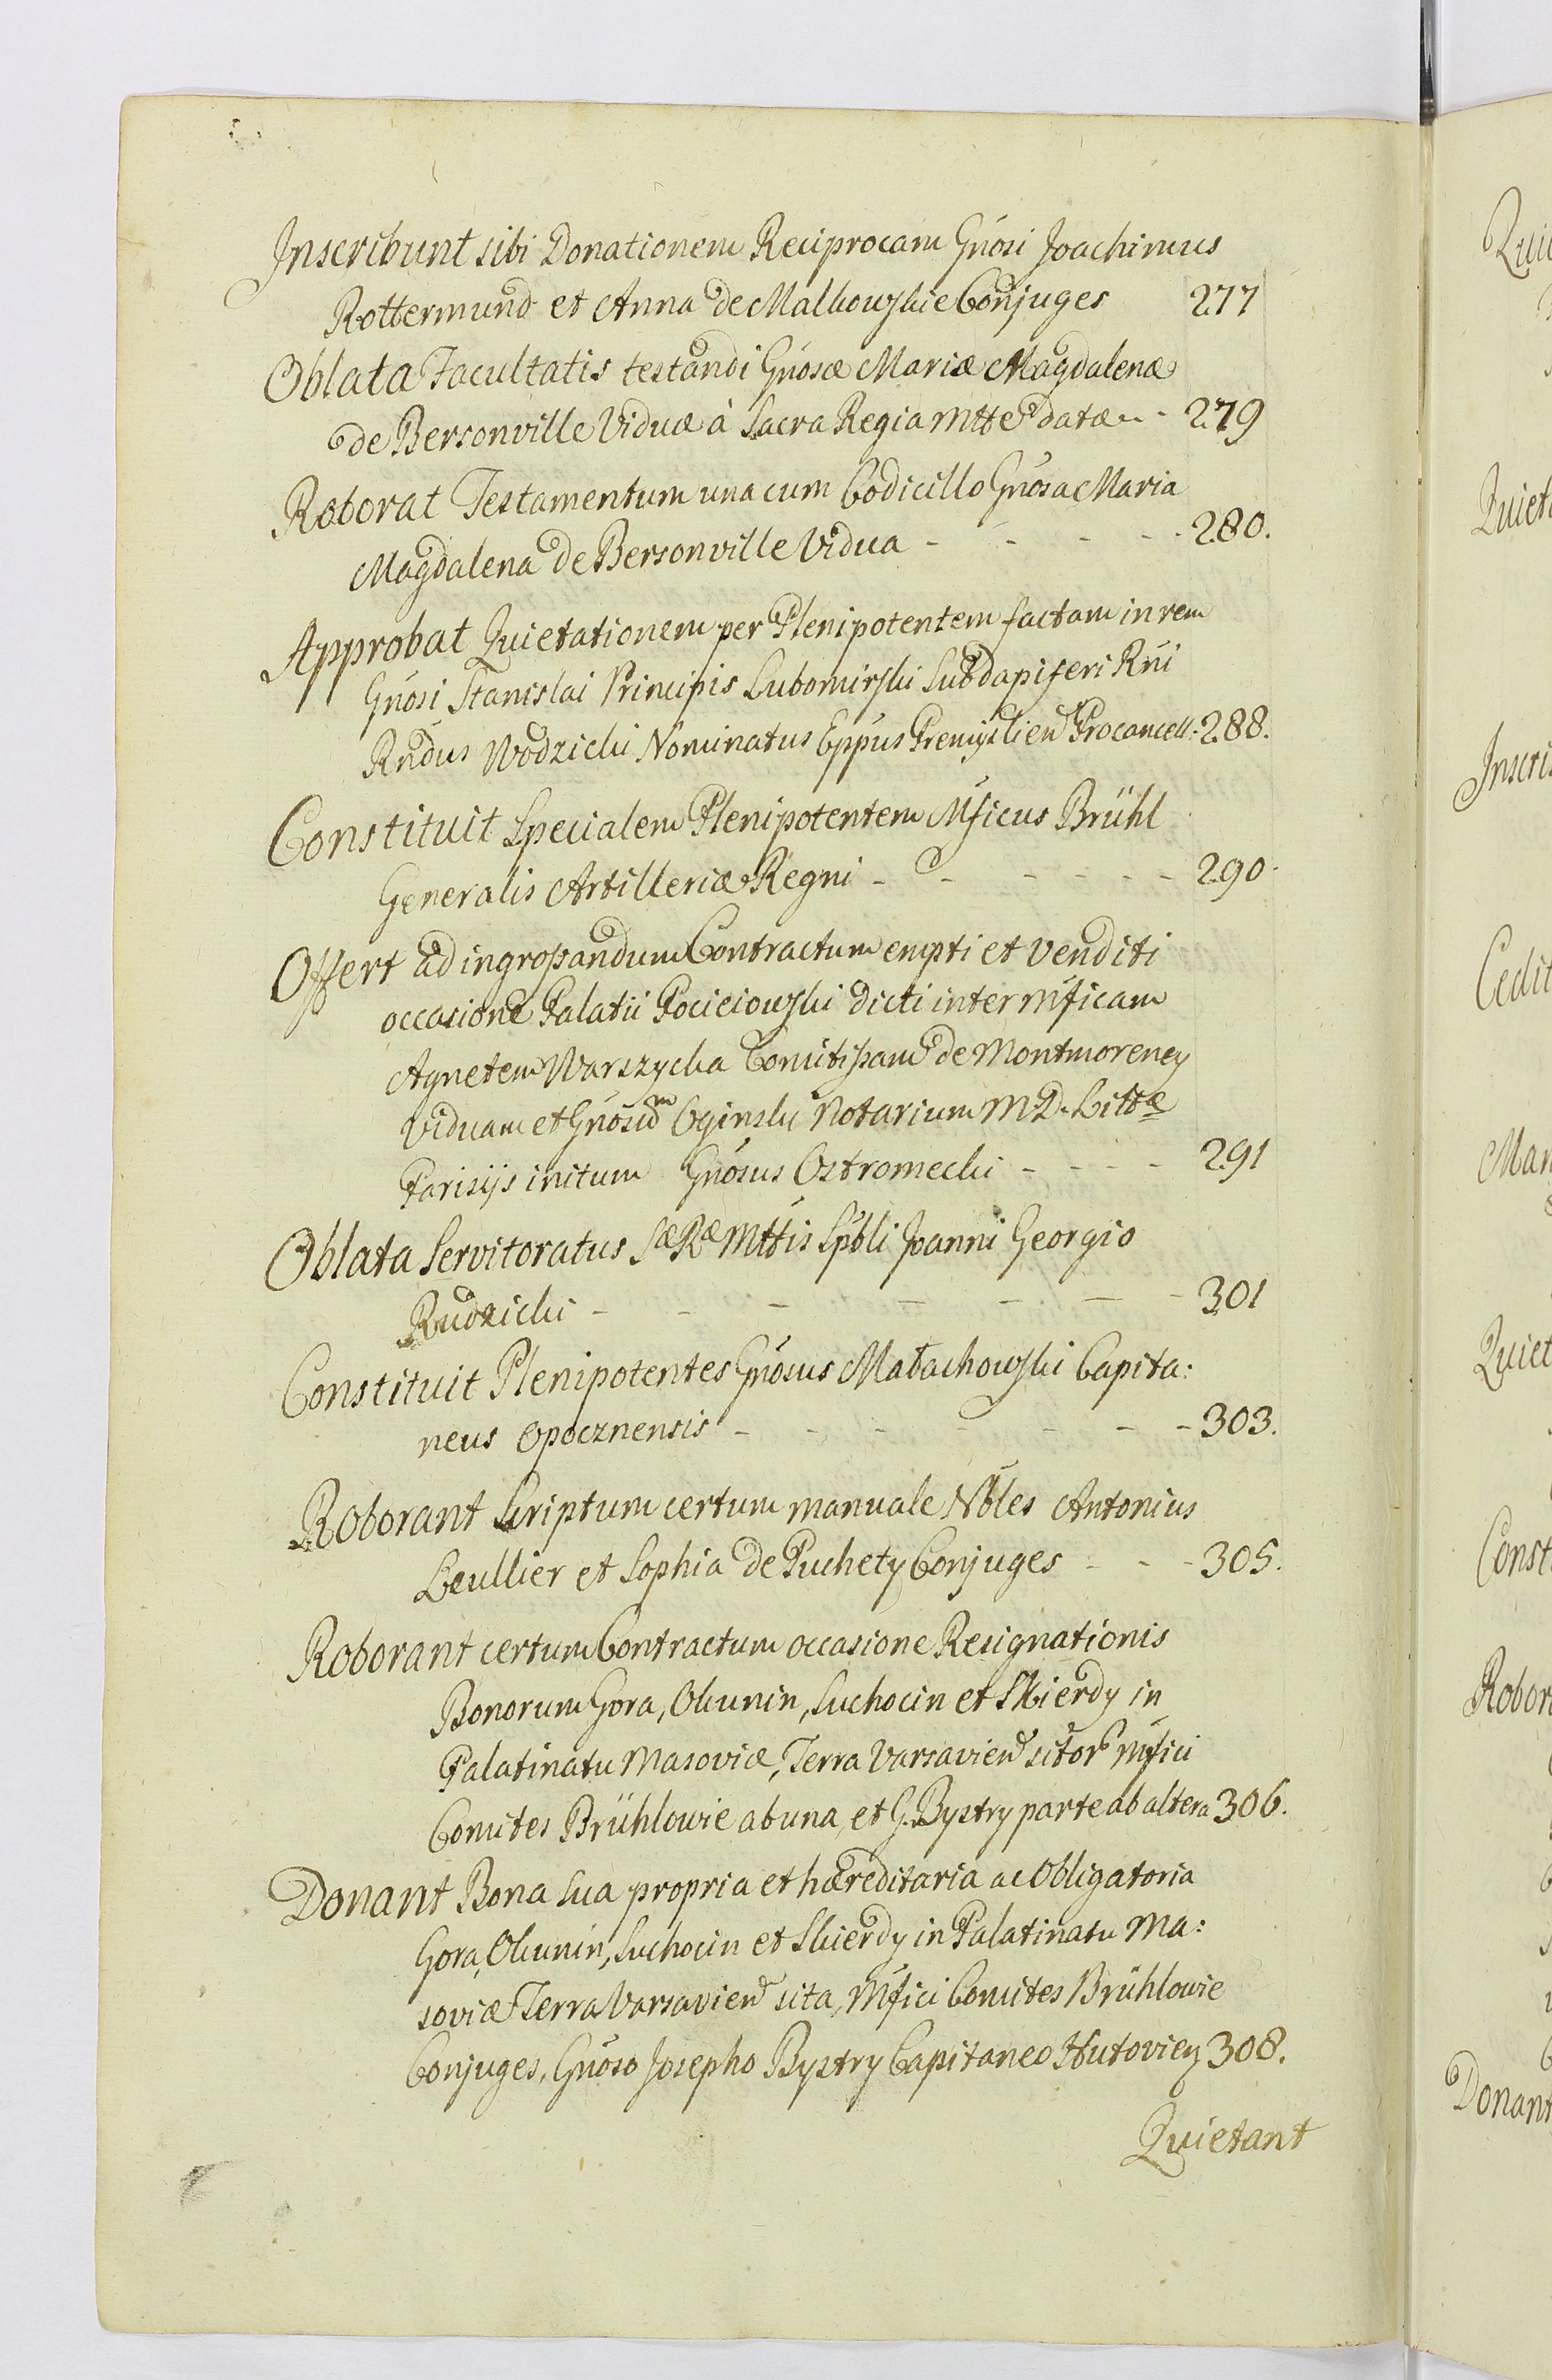 Inscribunt sibi Donationem Reciprocam Gnosi Joachimus
Rottermund et Anna de Malkowskie Conjuges 277
Oblata Facultatis testandi Gnosæ Mariæ Magdalenæ
de Bersonville Viduæ à Sacra Regia Mtte datæ - - 279
Roborat Testamentum una cum Codicillo Gnosa Maria
Magdalena de Bersonville Vidua - - - - - 280.
Approbat Quietationem per Plenipotentem factam in rem
Gnosi Stanislai Principis Lubomirski Subdapiferi Rni
Rndus Wodzicki Nominatus Eppus Premyslien Procancell: 288.
Constituit Specialem Plenipotentem Mficus Brühl
Generalis Artilleriæ Regni - - - - - - 290.
Offert ad ingrossandum Contractum empti et venditi
occasione Palatii Pocieiowski dicti inter Mficam
Agnetem Warszycka Comitissam de Montmorency
Viduam et Gnosum Oginski Notarium M. D. Littæ
Parisijs initum Gnosus Ostromecki - - - - 291
Oblata Servitoratus Sæ Ræ Mttis Spbli Joanni Georgio
Rudzicki - - - - - - - 301
Constituit Plenipotentes Gnosus Małachowski Capita:
neus Opocznensis - - - - - - - 303.
Roborant Scriptum certum manuale Nbles Antonius
Leullier et Sophia de Puchety Conjuges - - - 305.
Roborant certum Contractum occasione Resignationis
Bonorum Gora, Okunin, Suchocin et Skierdy in
Palatinatu Masoviæ, Terra Varsavien sitor Mfici
Comites Brühlowie ab una, et G. Bystry parte ab altera 306.
Donant Bona sua propria et hæreditaria ac Obligatoria
Gora, Okunin, Suchocin et Skierdy in Palatinatu Ma:
soviæ Terra Varsavien sita, Mfici Comites Brühlowie
Conjuges, Gnoso Josepho Bystry Capitaneo Hutovien 308.
Quietant